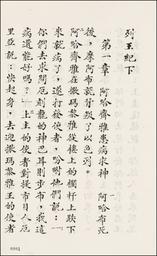 列王紀下
第一章 阿哈齊雅患病求神 阿哈布死
後，摩阿布就背叛了以色列。
阿哈齊雅在撒瑪黎雅從樓上的欄杆上跌下
來就病了，遂打發使者，吩咐他們說：「
你們去求問厄刻龍的神巴耳則步布，我這
病還能好嗎？」上主的使者對提市貝人厄
里亞說：「快起身，去迎撒瑪黎雅王的使者